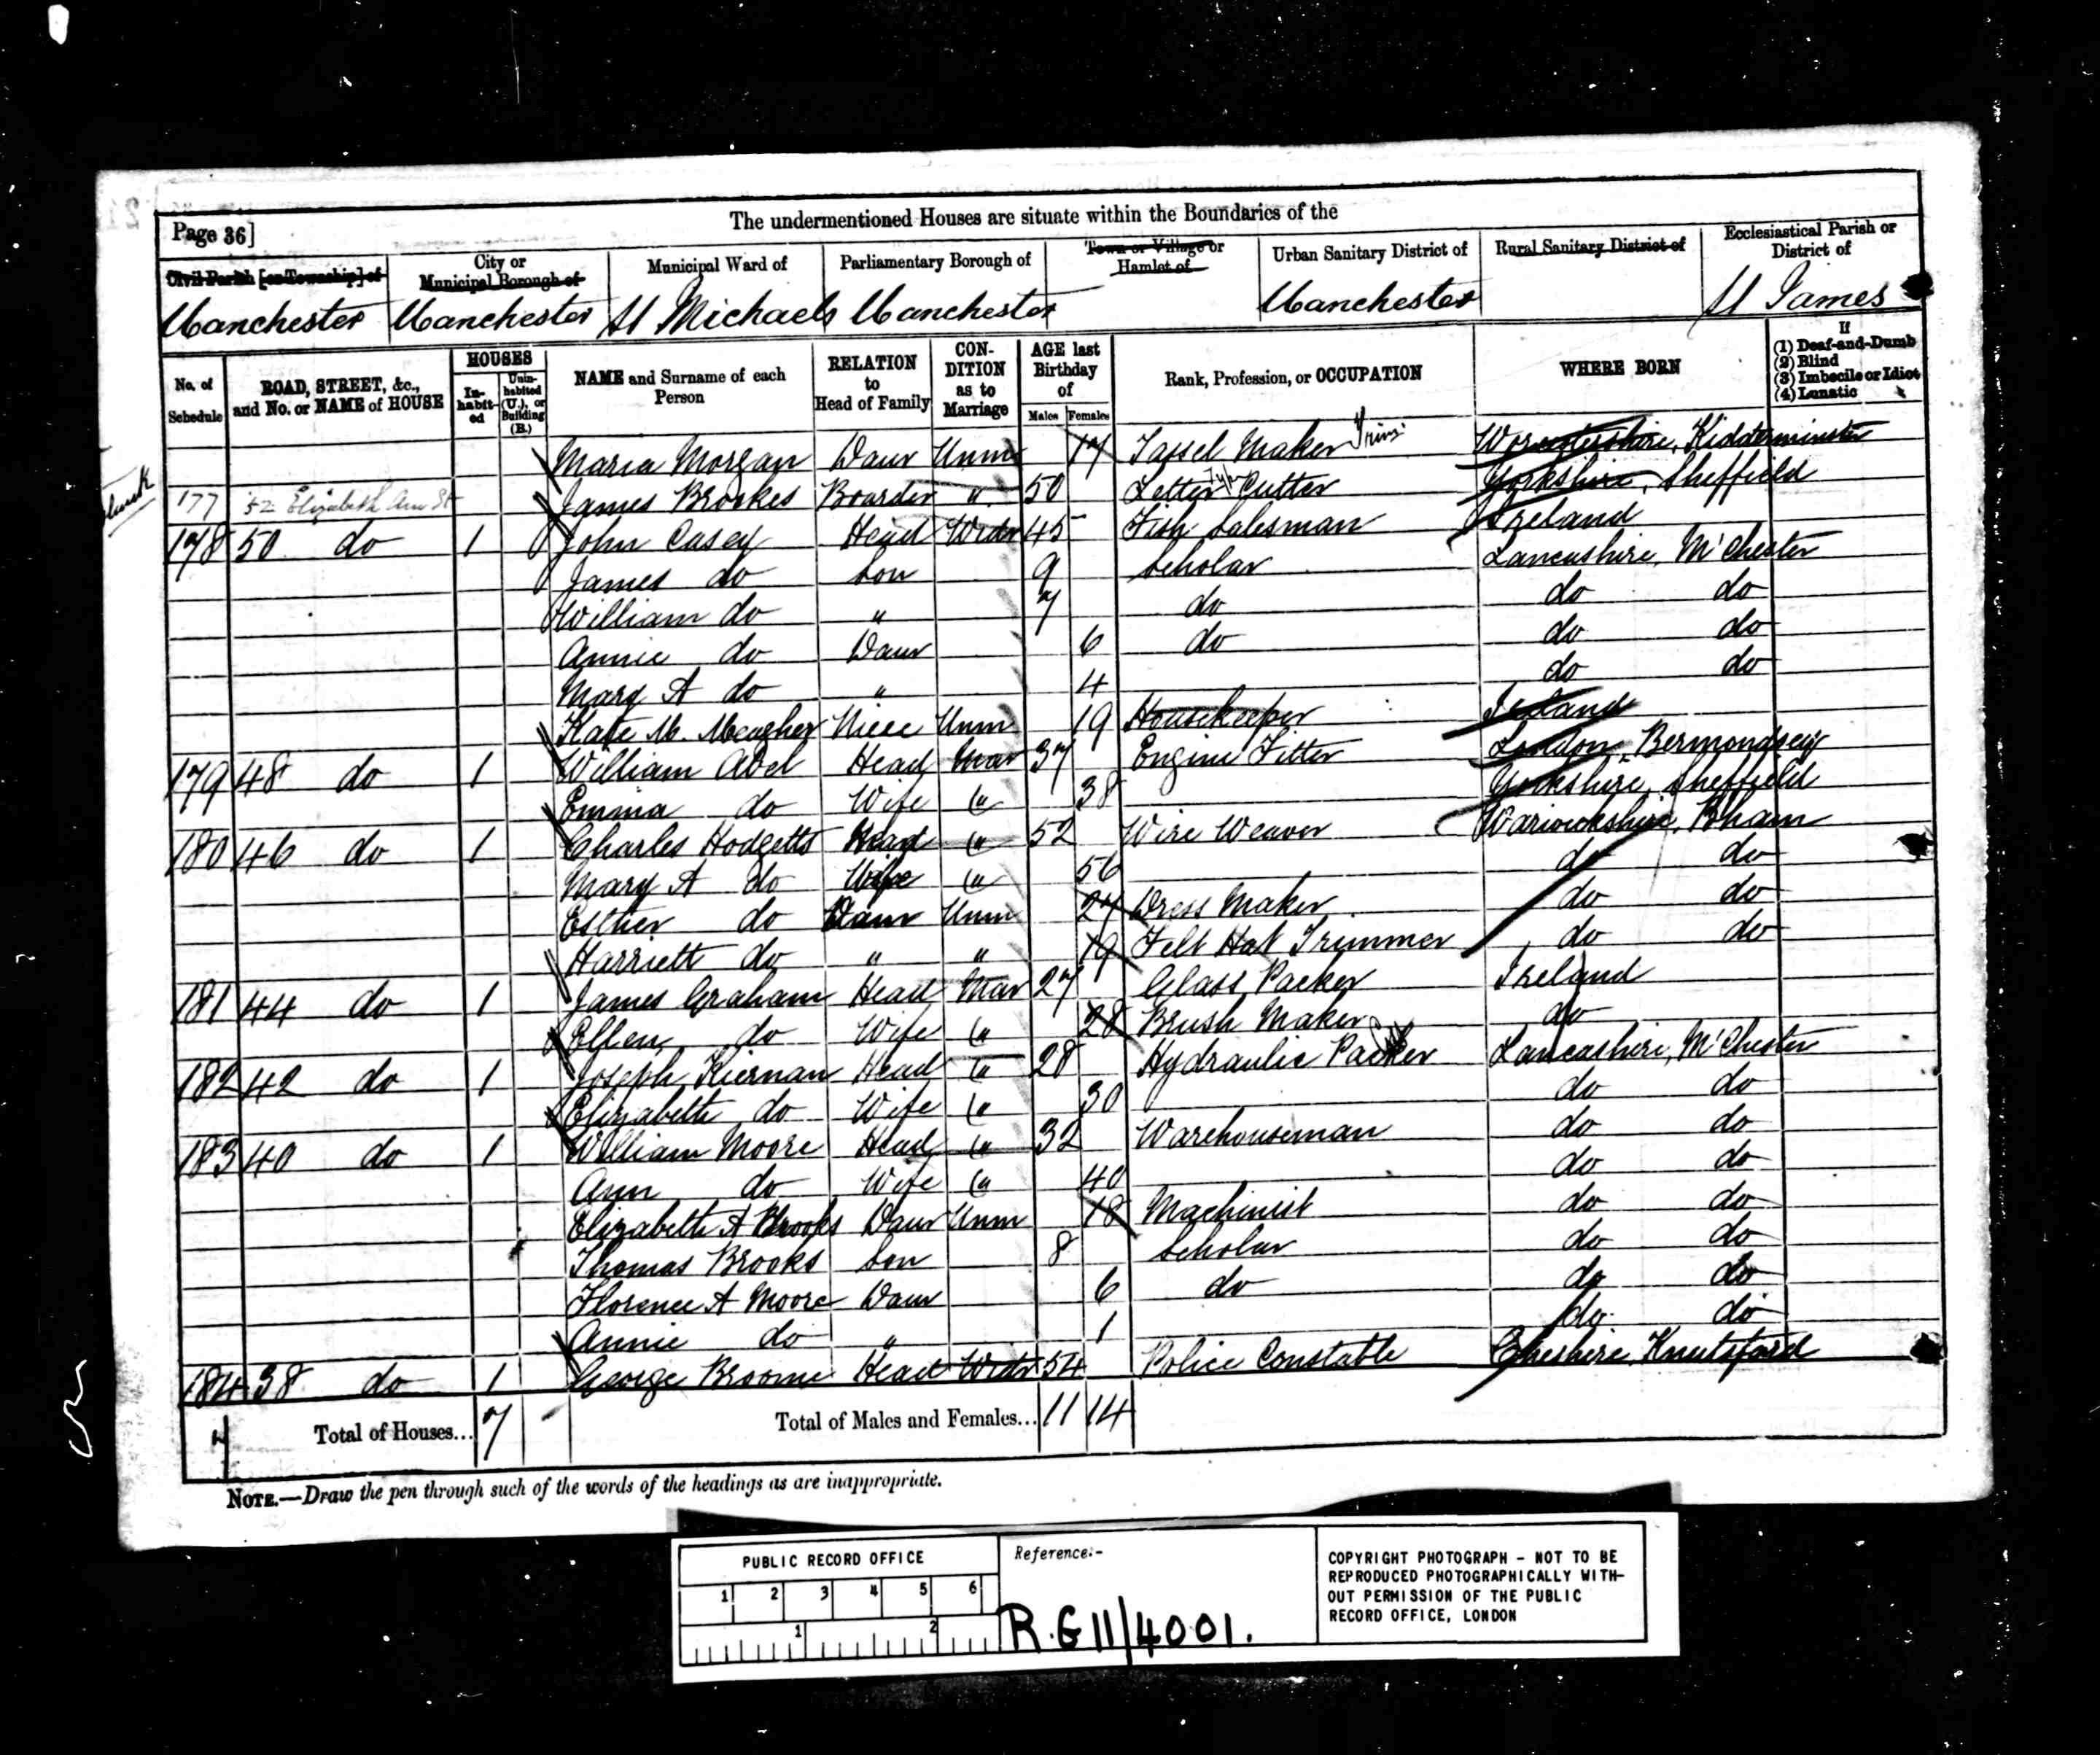 Page 36]
The undermentioned Houses are situate within the Boundaries of the
Civil Parish [or Township] of
City or Municipal Borough of
Municipal Ward of
Parliamentary Borough of
Town or Village or Hamlet of
Urban Sanitary District of
Rural Sanitary District of
Ecclesiastical Parish or District of
Manchester Manchester St Michaels Manchester Manchester St James
No. of Schedule
ROAD, STREET, &c., and No. or NAME of HOUSE
HOUSES
In-habit-ed
Unin-habited (U.), or Building (B.)
NAME and Surname of each Person
RELATION to Head of Family
CON-DITION as to Marriage
AGE last Birthday of
Males Females
Rank, Profession, or OCCUPATION
WHERE BORN
If
(1) Deaf-and-Dumb
(2) Blind
(3) Imbecile or Idiot
(4) Lunatic
Maria Morgan Daur Unm 17 Tassel Maker Worcestershire, Kidderminster
177 52 Elizabeth Ann St James Brookes Boarder " 50 Letter Cutter Yorkshire, Sheffield
178 50 do 1 John Casey Head Widr 45 Fish Salesman Ireland
James do Son 9 Scholar Lancashire, M'Chester
William do " 7 do do do
Annie do Daur 6 do do do
Mary A do " 4 do do
Kate M. Meagher Niece Unm 19 Housekeeper Ireland
179 48 do 1 William Abel Head Mar 37 Engine Fitter London, Bermondsey
Emma do Wife " 38 Yorkshire, Sheffield
180 46 do 1 Charles Hodgetts Head " 52 Wire Weaver Warwickshire, Bham
Mary A do Wife " 56 do do
Esther do Daur Unm 27 Dress Maker do do
Harriett do " " 19 Felt Hat Trimmer do do
181 44 do 1 James Graham Head Mar 27 Glass Packer Ireland
Ellen do Wife " 28 Brush Maker do
182 42 do 1 Joseph Kiernan Head " 28 Hydraulic Packer Lancashire, M'Chester
Elizabeth do Wife " 30 do do
183 40 do 1 William Moore Head " 32 Warehouseman do do
Ann do Wife " 40 do do
Elizabeth A Brooks Daur Unm 18 Machinist do do
Thomas Brooks Son 8 Scholar do do
Florence A Moore Daur 6 do do do
Annie do " 1 do do
184 38 do 1 George Broome Head Widr 54 Police Constable Cheshire, Knutsford
Total of Houses... 7 Total of Males and Females... 11 14
NOTE.—Draw the pen through such of the words of the headings as are inappropriate.
PUBLIC RECORD OFFICE
1 2 3 4 5 6
1 2
Reference:-
R.G 11/4001.
COPYRIGHT PHOTOGRAPH - NOT TO BE
REPRODUCED PHOTOGRAPHICALLY WITH-
OUT PERMISSION OF THE PUBLIC
RECORD OFFICE, LONDON